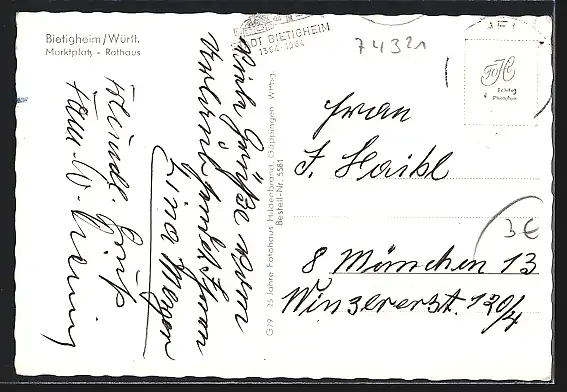 Bietigheim/Württ.
Marktplatz - Rathaus
STADT BIETIGHEIM
1364-1964
74321
Echtes
Photo
Viele Grüße vom
Urlaub
Lina Mayer
Freundl. Gruß
Fam. W.
G79 25 Jahre Fotohaus Hildenbrand, Göppingen Wttbg.
Bestell-Nr. 5581
Frau
J. Haibl
8 München 13
Winzererst. 120/4
3€